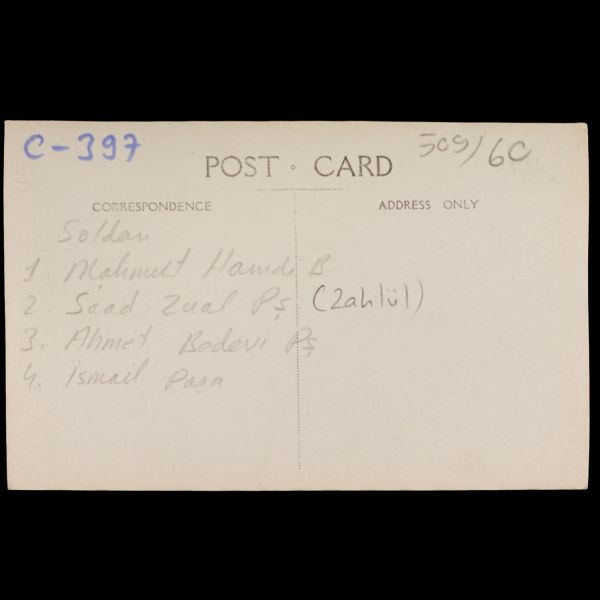 C-397
509/60
POST CARD
CORRESPONDENCE
ADDRESS ONLY
Soldan
1. Mahmut Hamdi B.
2. Sáad Zual Pş (Zahlül)
3. Ahmet Bedevi Pş
4. İsmail Paşa